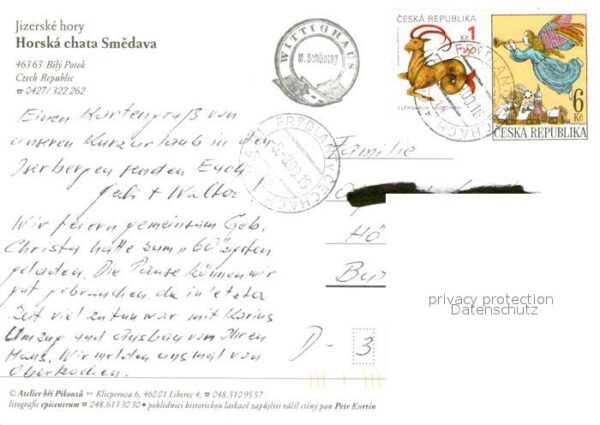 Jizerské hory
Horská chata Smědava
463 63 Bílý Potok
Czech Republic
☎ 0427/ 322 262
WITTIGHAUS
M. Schöntag
ČESKÁ REPUBLIKA
1 Kč
ZVĚROKRUH
6 Kč
ČESKÁ REPUBLIKA
FRÝDLANT V ČECHÁCH
Einen Kartengruß von
unserem Kurzurlaub in den
Iserbergen senden Euch
Gabi + Walter
Wir feiern gemeinsam Geb.
Christa hatte zum "60" spaten
geladen. Die Pause können wir
gut gebrauchen da in letzter
Zeit viel zu tun war mit Karins
Umzug und Ausbau von Ihrem
Haus. Wir melden uns mal von
Oberkochen.
Familie
Hö
Bu
D - 3
privacy protection
Datenschutz
© Atelier bří Píkousů ↔ Klicperova 6, 460 01 Liberec 4, ☎ 048.5109557
litografie epicentrum ☎ 048.613 30 30 • pohlednici historickou laskavě zapůjčil ráčil ctěný pan Petr Kurtin